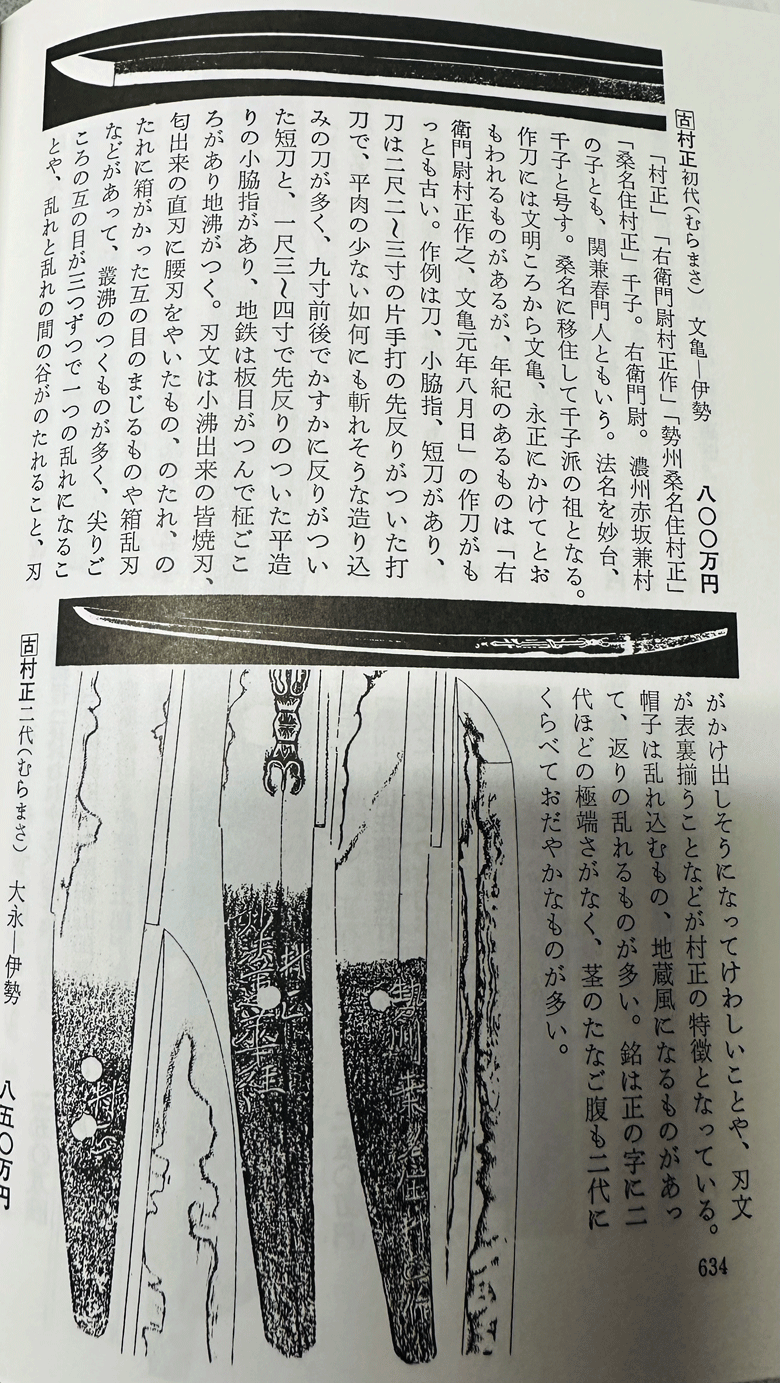 古村正 初代(むらまさ) 文亀―伊勢 八〇〇万円
「村正」「右衛門尉村正作」「勢州桑名住村正」
「桑名住村正」千子。右衛門尉。濃州赤坂兼村
の子とも、関兼春門人ともいう。法名を妙台、
千子と号す。桑名に移住して千子派の祖となる。
作刀には文明ころから文亀、永正にかけてとお
もわれるものがあるが、年紀のあるものは「右
衛門尉村正作之、文亀元年八月日」の作刀がも
っとも古い。作例は刀、小脇指、短刀があり、
刀は二尺二～三寸の片手打の先反りがついた打
刀で、平肉の少ない如何にも斬れそうな造り込
みの刀が多く、九寸前後でかすかに反りがつい
た短刀と、一尺三～四寸で先反りのついた平造
りの小脇指があり、地鉄は板目がつんで柾ごこ
ろがあり地沸がつく。刃文は小沸出来の皆焼刃、
匂出来の直刃に腰刃をやいたもの、のたれ、の
たれに箱がかった互の目のまじるものや箱乱刃
などがあって、叢沸のつくものが多く、尖りご
ころの互の目が三つずつで一つの乱れになるこ
とや、乱れと乱れの間の谷がのたれること、刃
がかけ出しそうになってけわしいことや、刃文
が表裏揃うことなどが村正の特徴となっている。
帽子は乱れ込むもの、地蔵風になるものがあっ
て、返りの乱れるものが多い。銘は正の字に二
代ほどの極端さがなく、茎のたなご腹も二代に
くらべておだやかなものが多い。
勢州桑名住村正作
村正
古村正 二代(むらまさ) 大永―伊勢 八五〇万円
634